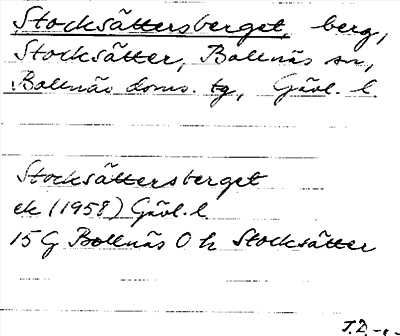 Stocksättersberget, berg,
Stocksätter, Bollnäs sn,
Bollnäs doms. tg, Gävl. l.
Stocksättersberget
ek (1958) Gävl. l.
15 G Bollnäs O h Stocksätter
T.D.